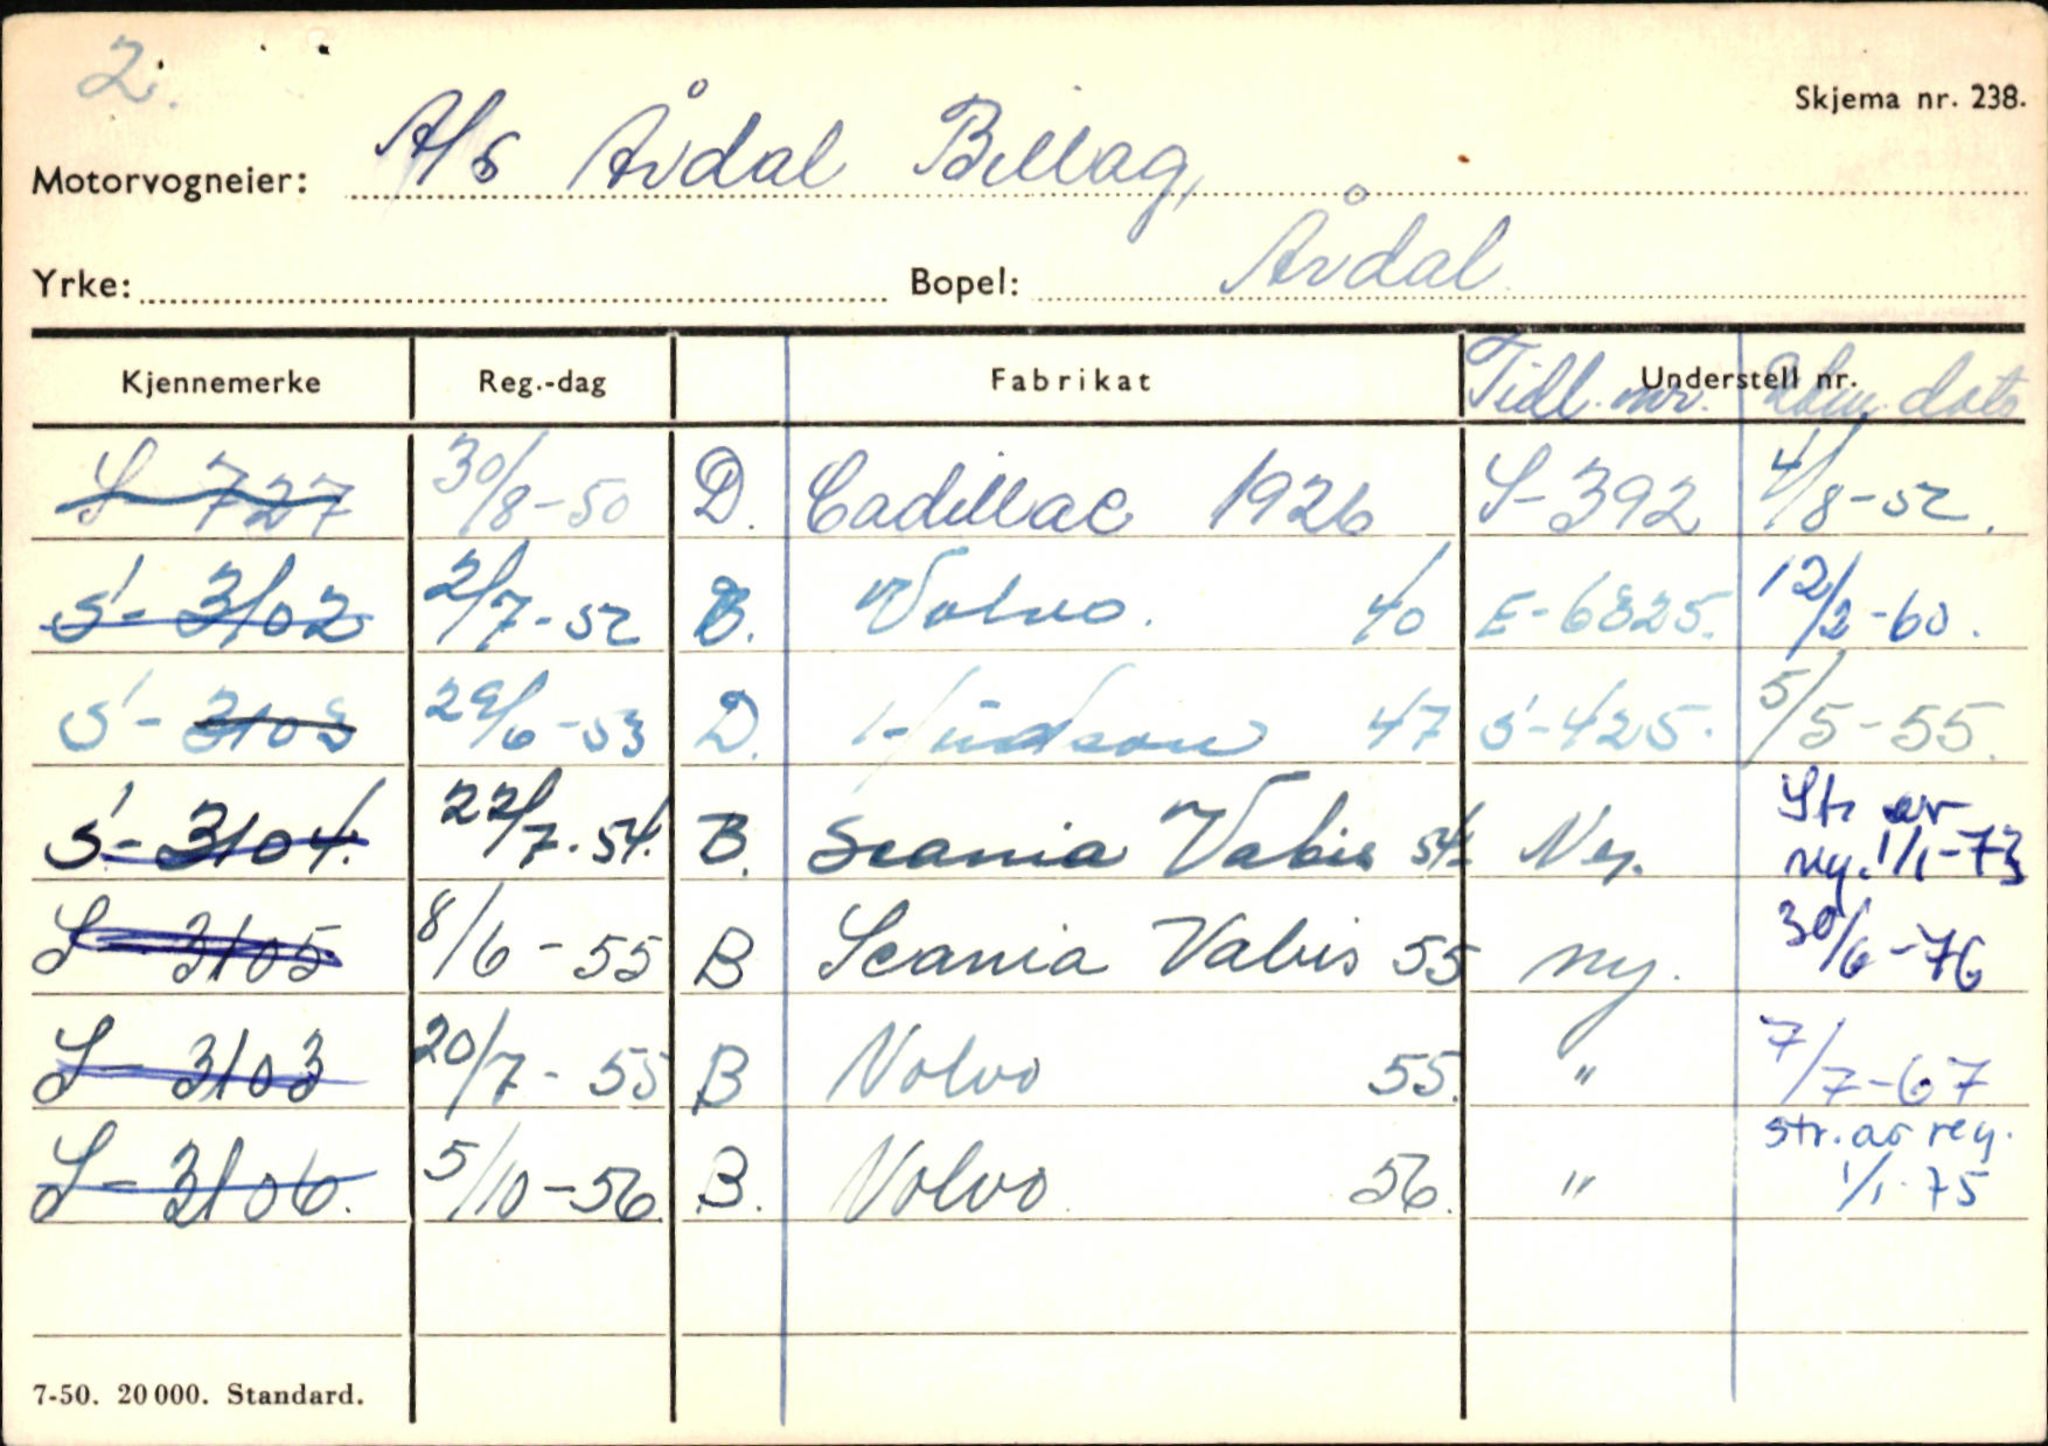 2.
Skjema nr. 238.
Motorvogneier: A/S Årdal Billag,
Yrke: Bopel: Årdal
Kjennemerke Reg.-dag Fabrikat Understell nr. Tidl. nr. dato
S-727 30/8-50 D. Cadillac 1926 S-392 4/8-52.
S-3102 2/7-52 B. Volvo. 40 E-6825. 12/2-60.
S-3103 29/6-53 D. Hudson 47 S-425. 5/5-55.
S-3104. 22/7-54. B. Scania Vabis 54 Ny. Str av
reg. 1/1-73
S-3105 8/6-55 B Scania Vabis 55 ny. 30/6-76
S-3103 20/7-55 B Volvo 55. " 7/7-67
S-3106. 5/10-56. B. Volvo 56. " str. av reg.
1/1-75
7-50. 20 000. Standard.